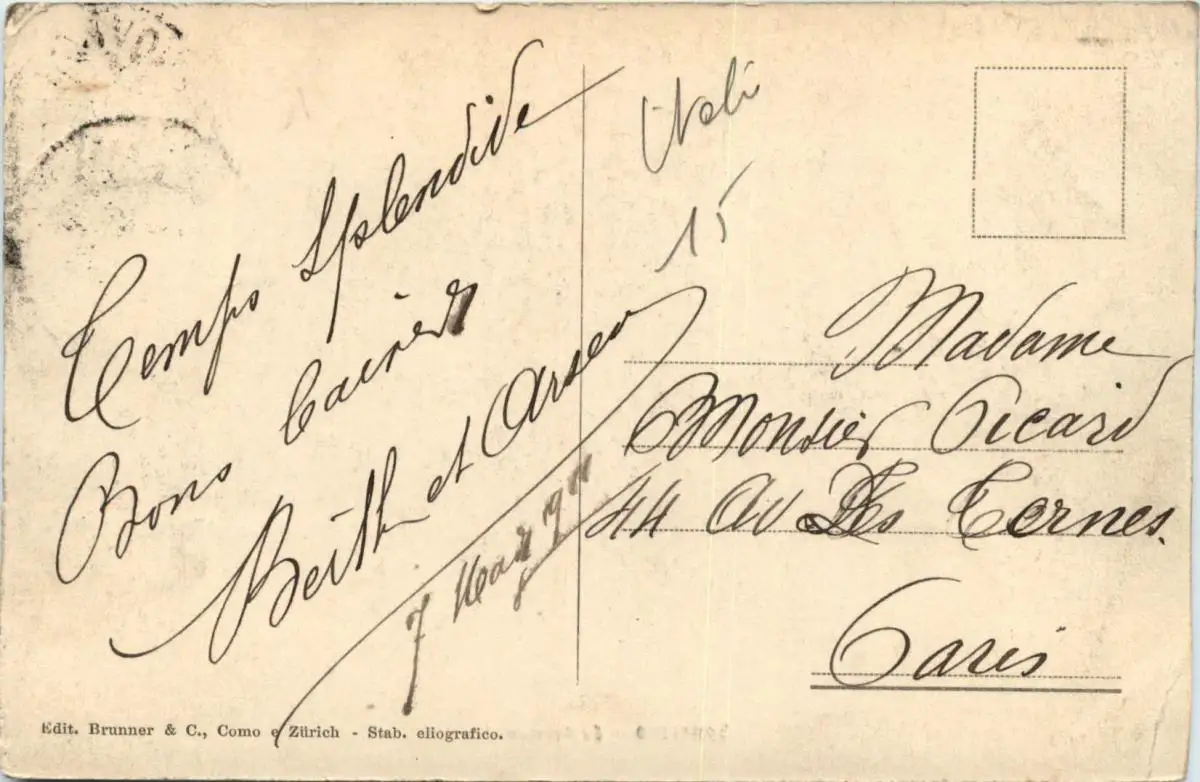 Temps Splendide
Bons Baisers
Berth et Arsen
7 Mars
Itali
15
Madame
Monsier Picard
44 Av Des Ternes.
Paris
Edit. Brunner & C., Como e Zürich - Stab. eliografico.